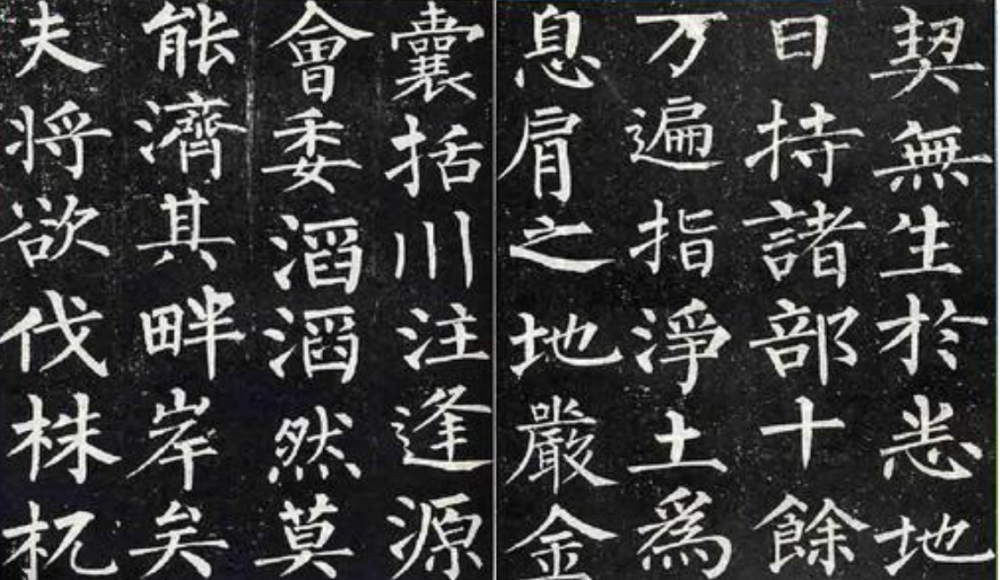 契無生於恙地
日持諸部十餘
万遍指淨土為
息肩之地嚴金
囊括川注逢源
會委滔滔然莫
能濟其畔岸矣
夫将欲伐株杌